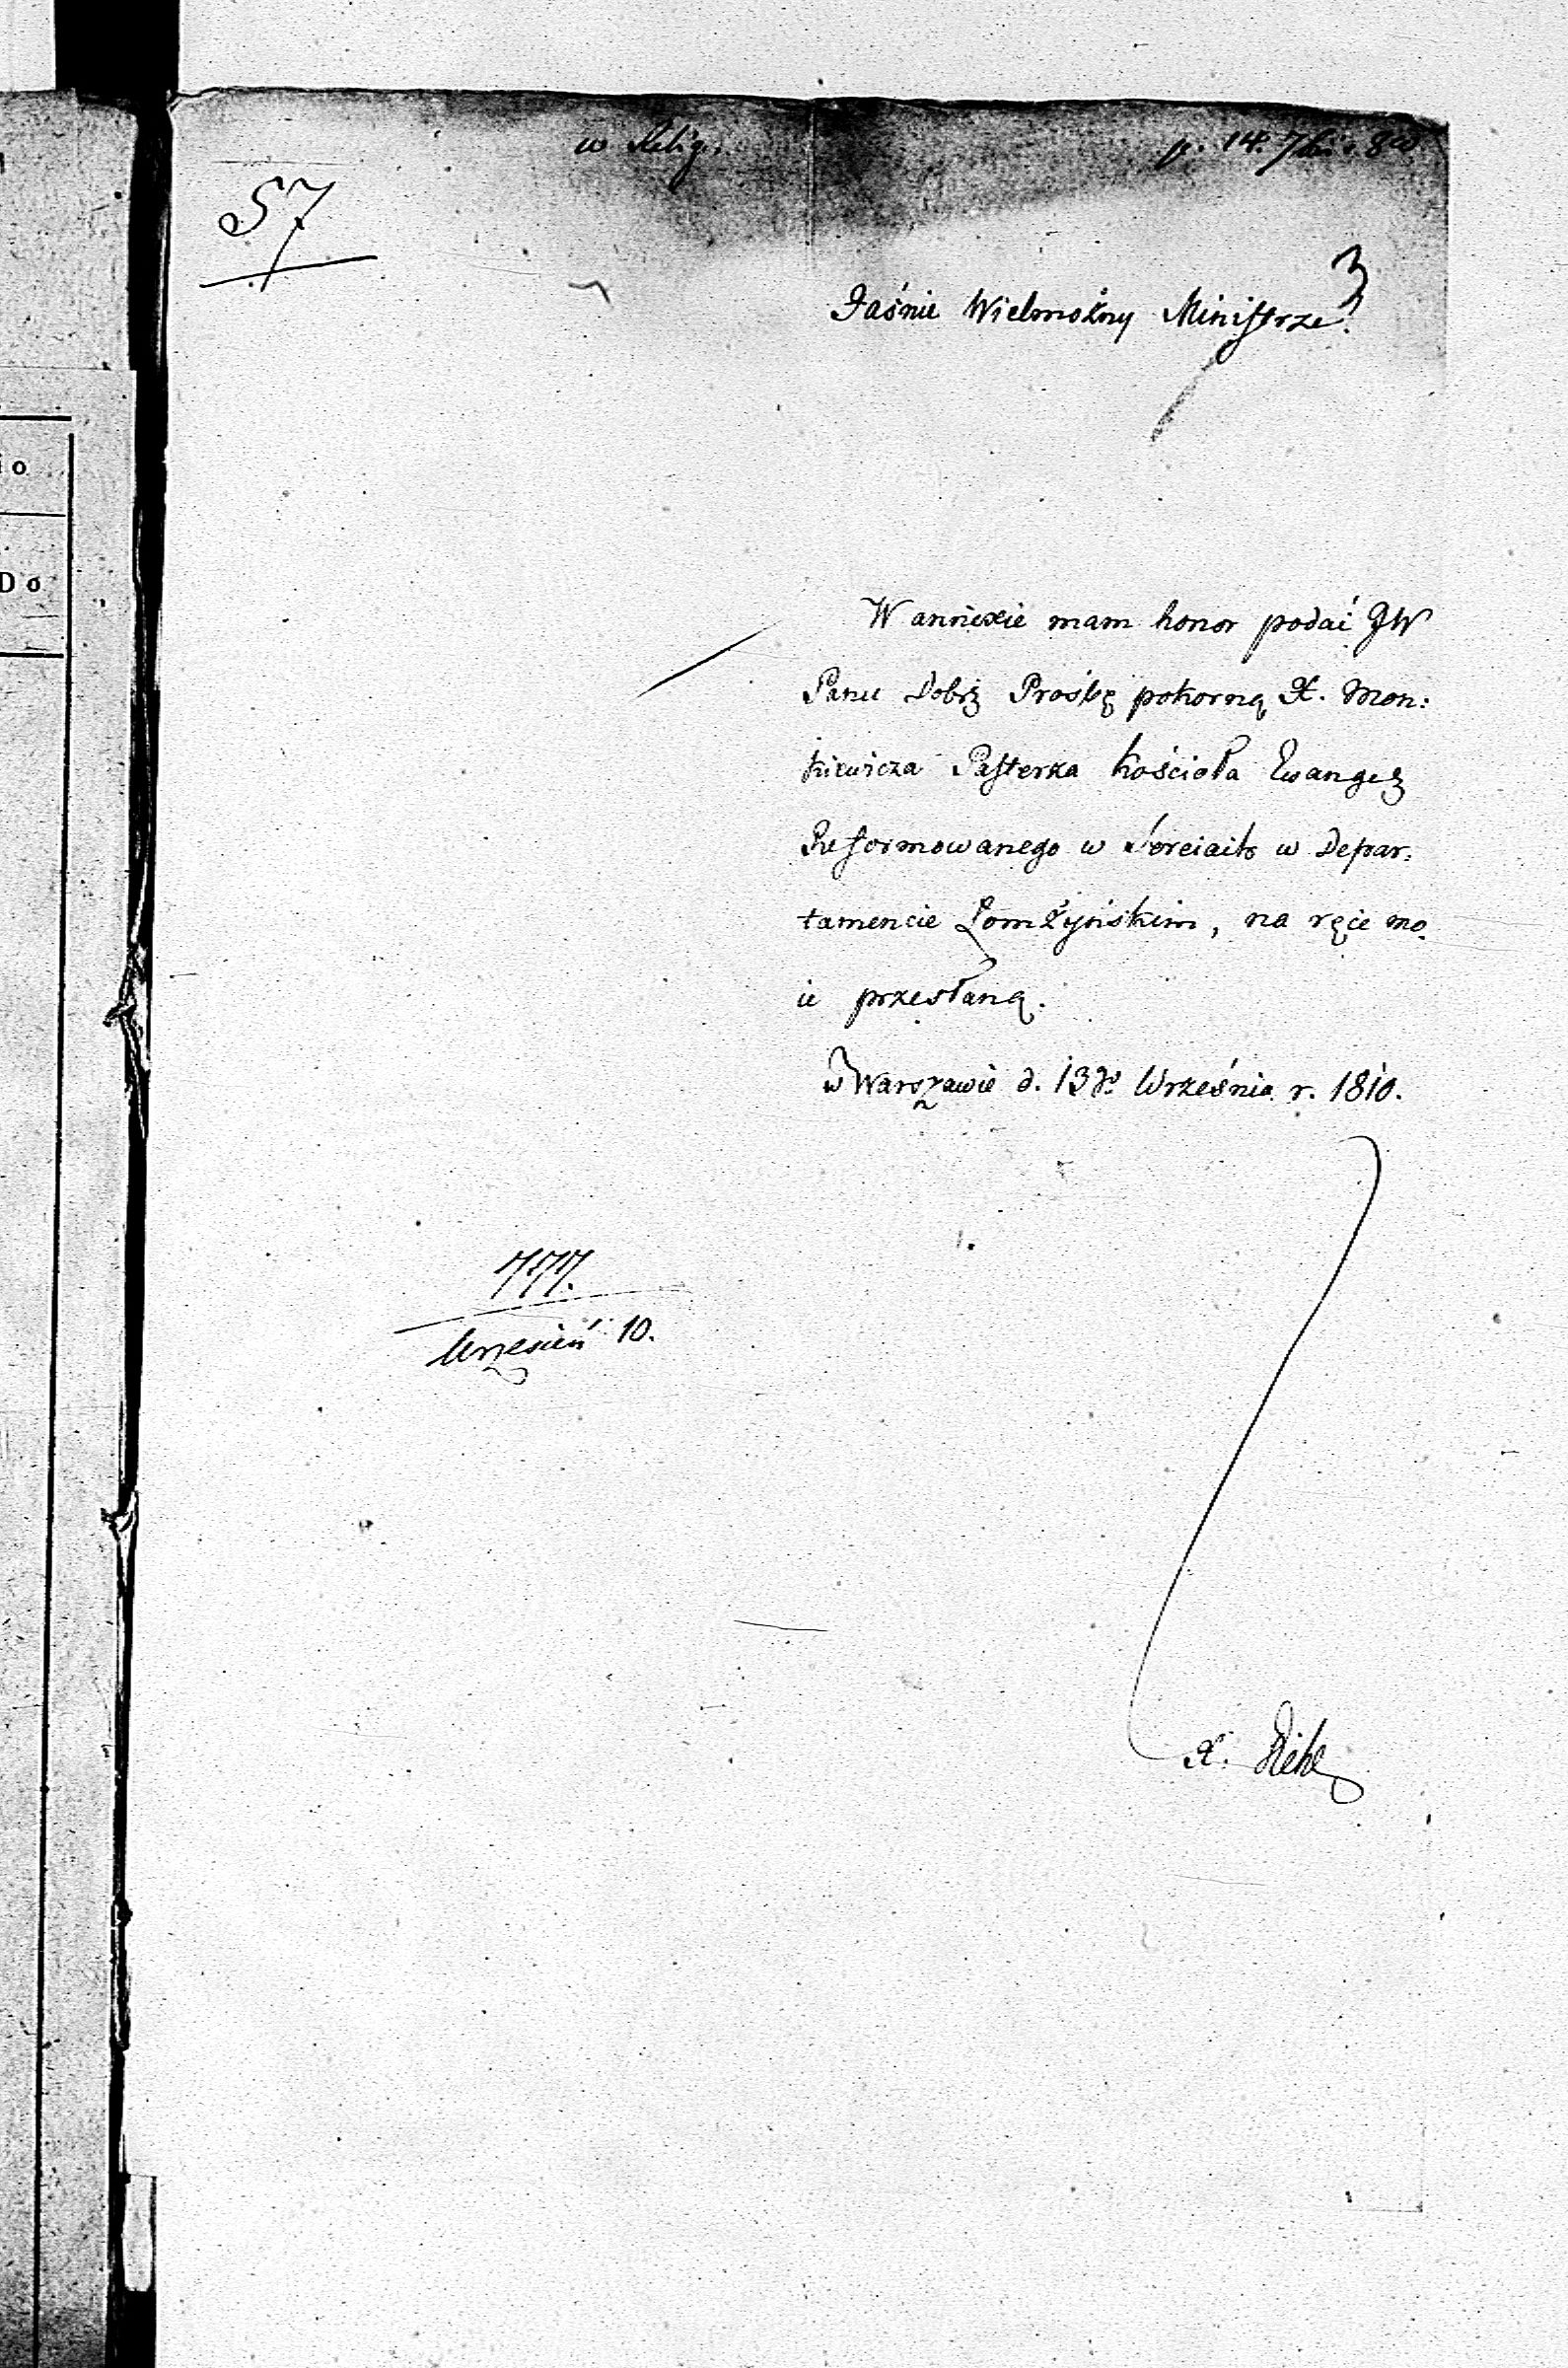 w Relig.
p. 14. 7br. 8
57
3
Jaśnie Wielmożny Ministrze!
W annexie mam honor podać JW
Panu Dobrz Prośbę pokorną X. Mon:
kiewicza Pasterza Kościoła Ewangez
Reformowanego w Sereiach w Depar:
tamencie Łomżyńskim, na ręce mo:
ie przesłaną.
w Warszawie d. 13go Września r. 1810.
777.
Wrzesień 10.
X. Diehl
io
Do